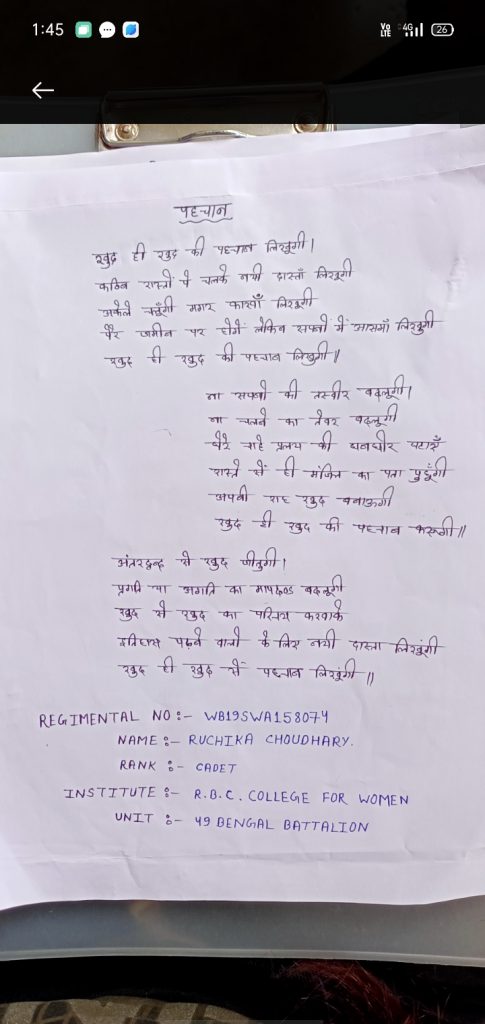 1:45
Vo LTE 4G 26
पहचान
खुद ही खुद की पहचान लिखूगी।
कठिन रास्तो पे चलके नयी दास्ताँ लिखूगी
अकेले चलूँगी मगर कारवाँ लिखूगी
पैर जमीन पर होगें लेकिन सपनो में आसमाँ लिखुगी
खुद ही खुद की पहचान लिखुगी॥
ना सपनो की तस्वीर बदलूगी।
ना चलने का तेवर बदलूगी
घेरे चाहे प्रलय की घनघोर घटाएँ
रास्ते से ही मंजिल का पता पुछूँगी
अपनी राह खुद बनाऊगी
खुद ही खुद की पहचान करूगी॥
अंतरद्वन्द से खुद जीतुगी।
प्रगति या अगति का मापदण्ड बदलूगी
खुद से खुद का परिचय करवाके
इतिहास पढ़ने वालो के लिए नयी दास्ता लिखूंगी
खुद ही खुद से पहचान लिखूंगी॥
REGIMENTAL NO :- WB19SWA158074
NAME :- RUCHIKA CHOUDHARY.
RANK :- CADET
INSTITUTE :- R.B.C. COLLEGE FOR WOMEN
UNIT :- 49 BENGAL BATTALION